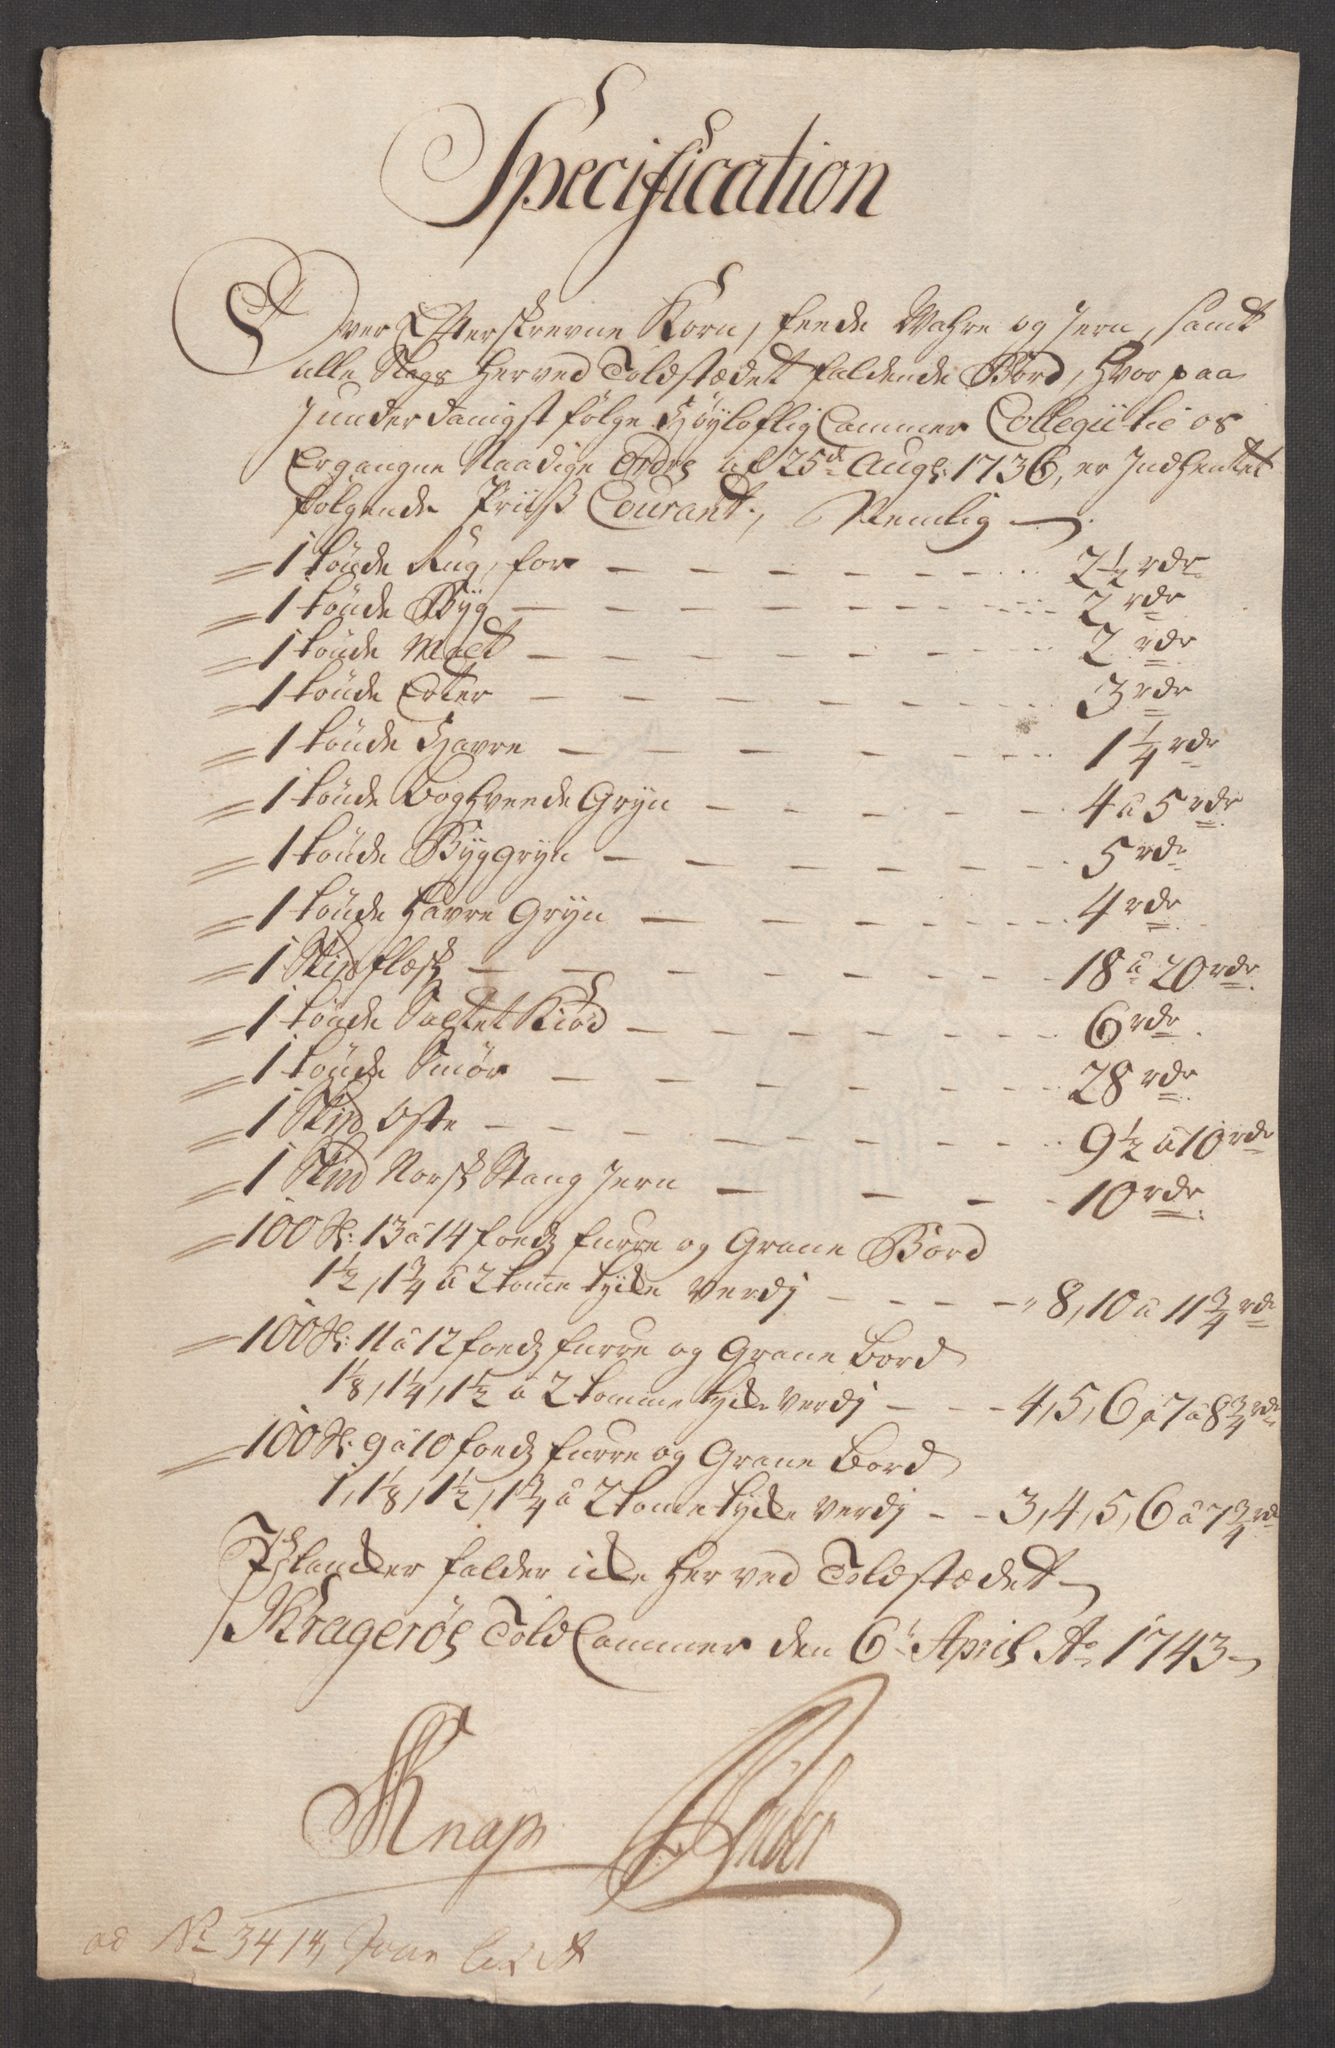 Specification
Over Efterskrevne Korn, feede Wahre og Jern, samt
alle Slags Herved Toldstædet faldende Bord, Hvorpaa
J underdanigst følge Høyloflig Cammer Collegii til os
Ergangne Naadige Ordre af 25de Aug: 1736, er Indhentet
følgende Priiß Courant, Nemlig
1 tønde Rug, for 2 1/2 rdr
1 tønde Byg 2 rdr
1 tønde Malt 2 rdr
1 tønde Erter 3 rdr
1 tønde Havre 1 1/4 rdr
1 tønde boghveede Gryn 4 a 5 rdr
1 tønde Byggryn 5 rdr
1 tønde Havre Gryn 4 rdr
1 Skpd flæsk 18 a 20 rdr
1 tønde Saltet Kiød 6 rdr
1 tønde Smør 28 rdr
1 Skpd Oste 9 1/2 a 10 rdr
1 Skpd Norsk Stang Jern 10 rdr
100 St: 13 a 14 foeds furre og Grane Bord
1 1/2, 1 3/4 a 2 tomme tycke Verdj 8, 10 a 11 3/4 rdr
100 St: 11 a 12 foeds furre og Grane bord
1/8, 1 1/4, 1 1/2 a 2 tomme tycke Verdj 4, 5, 6 a 7 a 8 3/4 rdr
100 St: 9 a 10 foeds furre og Grane bord
1, 1/8, 1 1/2, 1 3/4 a 2 tome tycke Verdj 3, 4, 5, 6 a 7 3/4 rdr
Plancker falder icke Her ved Toldstædet
Kragerøes Told Cammer den 6t April Ao 1743
Knap
ad No 3414